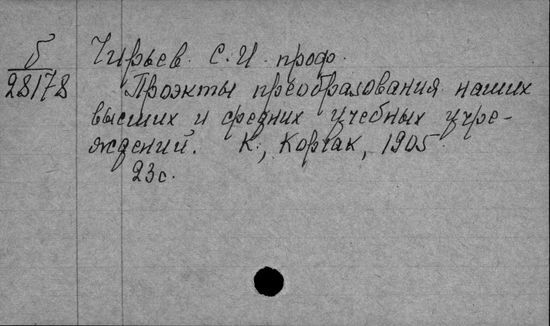 б Чирьев С.И. проф.
28178 Проэкты преобразования наших
высших и средних учебных учре-
ждений. К., Корчак, 1905.
23с.